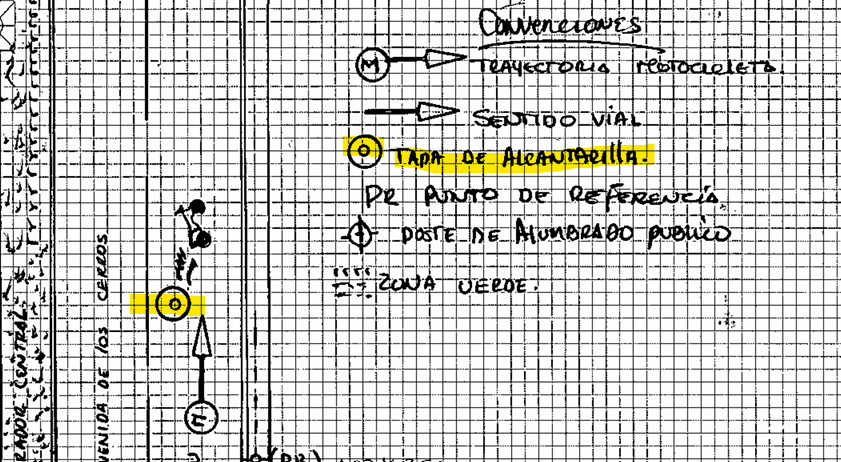 CONVENCIONES
M TRAYECTORIA MOTOCICLETA.
SENTIDO VIAL
TAPA DE ALCANTARILLA.
PR PUNTO DE REFERENCIA
POSTE DE ALUMBRADO PUBLICO
ZONA VERDE.
VENIDA DE LOS CERROS
RADOR CENTRAL
M
(PR)